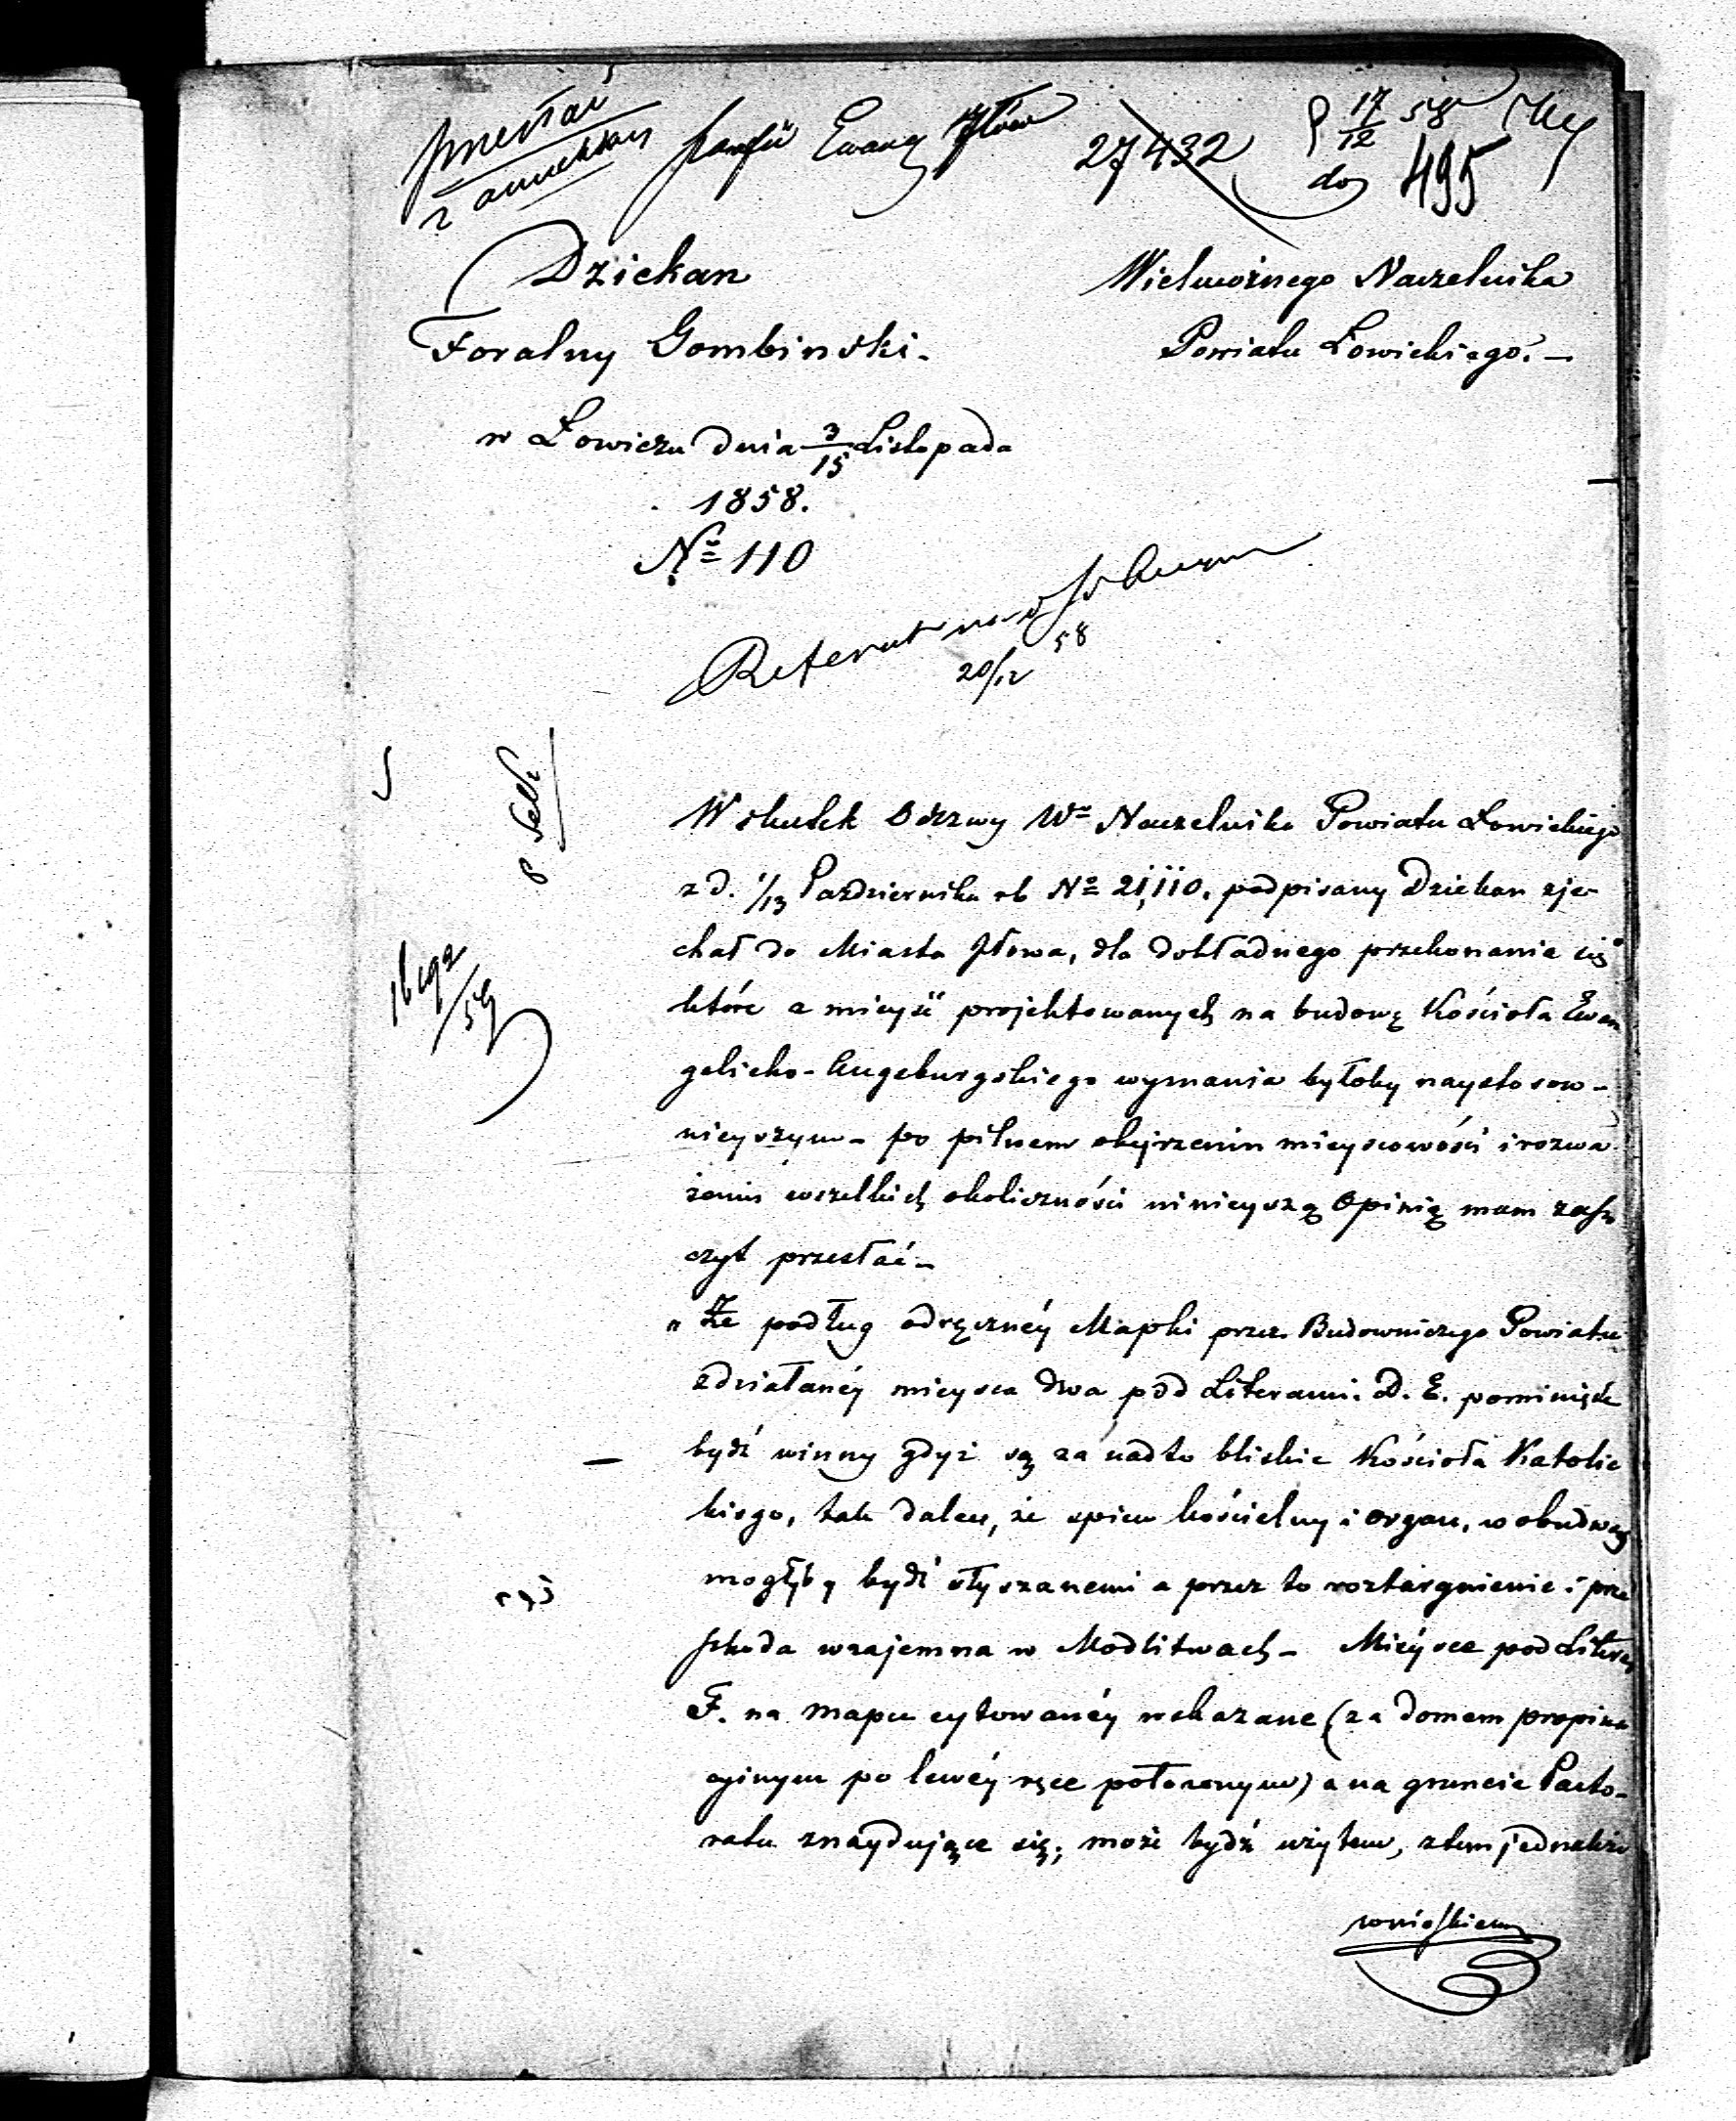 przesłać
z annexami
parafii Ewang Iłów
27432
17/12 58
do 495
Dziekan
Foralny Gombinski.
Wielmożnego Naczelnika
Powiatu Łowickiego. —
w Łowiczu dnia 3/15 Listopada
1858.
№ 110
Referent
20/12 58
Wskutek Odezwy Wº Naczelnika Powiatu Łowickiego
z d. 1/13 Pazdziernika rb № 21,110. podpisany Dziekan zje-
chał do Miasta Iłowa, dla dokładnego przekonania się
które z mieysć projektowanych na budowę Kościoła Ewan
gelicko-Augsburgskiego wyznania byłoby naystosow-
nieyszym – po pilnem obejrzeniu mieyscowości i rozwa
żeniu wszelkich okoliczności ninieyszą Opinią mam zasz
czyt przesłać –
„ Że podług odręcznéy Mapki przez Budowniczego Powiatu
zdziałanéy mieysca dwa pod Literami. D. E. pominięte
bydź winny gdyż są za nadto bliskie Kościoła Katolic
kiego, tak dalece, że spiew kościelny i organ, w obudwóch
mogłyby bydź słyszanemi a przez to roztargnienie i prze
szkoda wzajemna w Modlitwach – Miéysce pod Literą
F. na mapce cytowanéy wskazane (za domem propina
cyinym po lewéy ręce położonym) a na gruncie Pasto-
ratu znaydujące się; może bydź użytem, z tem jednakże
wnioskiem